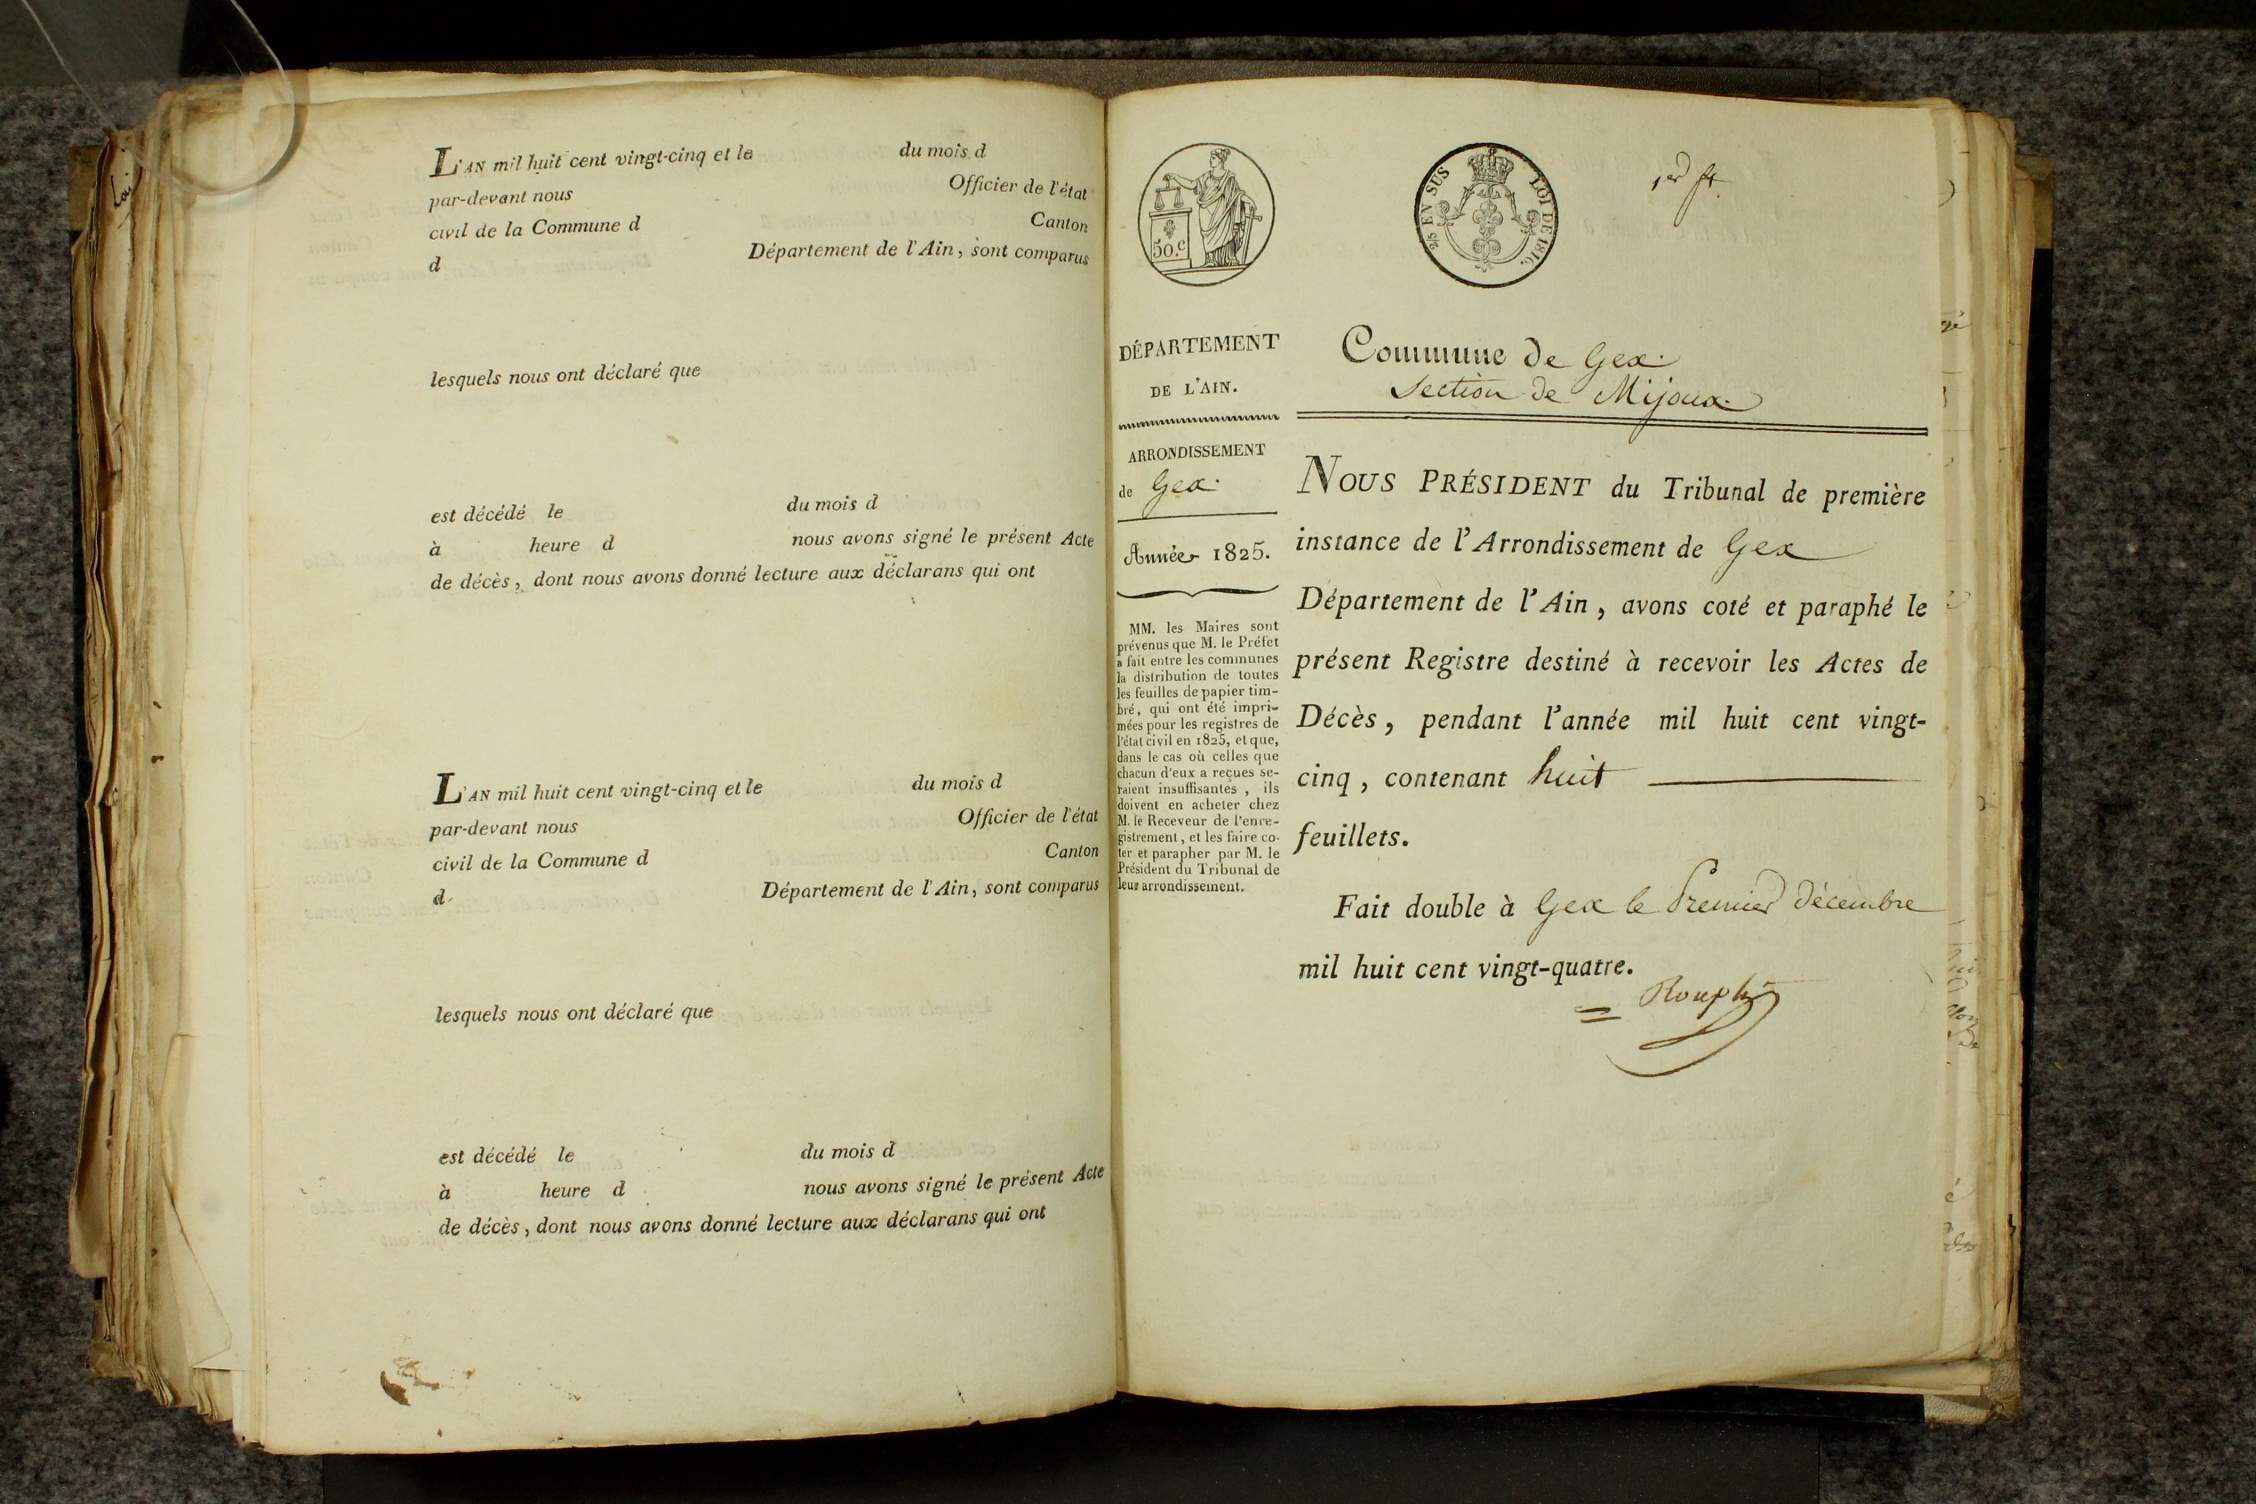 L'AN mil huit cent vingt-cinq et le du mois d
par-devant nous Officier de l'état
civil de la Commune d Canton
d Département de l'Ain, sont comparus
lesquels nous ont déclaré que
est décédé le du mois d
à heure d nous avons signé le présent Acte
de décès, dont nous avons donné lecture aux déclarans qui ont
L'AN mil huit cent vingt-cinq et le du mois d
par-devant nous Officier de l'état
civil de la Commune d Canton
d Département de l'Ain, sont comparus
lesquels nous ont déclaré que
est décédé le du mois d
à heure d nous avons signé le présent Acte
de décès, dont nous avons donné lecture aux déclarans qui ont
50.c
EN SUS LOI DE 1816.
1er ft.
DÉPARTEMENT
DE L'AIN.
ARRONDISSEMENT
de Gex.
Année 1825.
MM. les Maires sont
prévenus que M. le Préfet
a fait entre les communes
la distribution de toutes
les feuilles de papier tim-
bré, qui ont été impri-
mées pour les registres de
l'état civil en 1825, et que,
dans le cas où celles que
chacun d'eux a reçues se-
raient insuffisantes, ils
doivent en acheter chez
M. le Receveur de l'enre-
gistrement, et les faire co-
ter et parapher par M. le
Président du Tribunal de
leur arrondissement.
Commune de Gex.
Section de Mijoux.
NOUS PRÉSIDENT du Tribunal de première
instance de l'Arrondissement de Gex
Département de l'Ain, avons coté et paraphé le
présent Registre destiné à recevoir les Actes de
Décès, pendant l'année mil huit cent vingt-
cinq, contenant huit
feuillets.
Fait double à Gex le Premier Décembre
mil huit cent vingt-quatre.